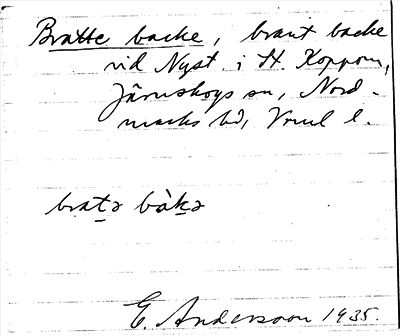 Bratte backe, brant backe
vid Nyst. i St. Koppom,
Järnskogs sn, Nord-
marks hd, Vrml l.
brat̠ə bàk̠ə
E. Andersson 1935.